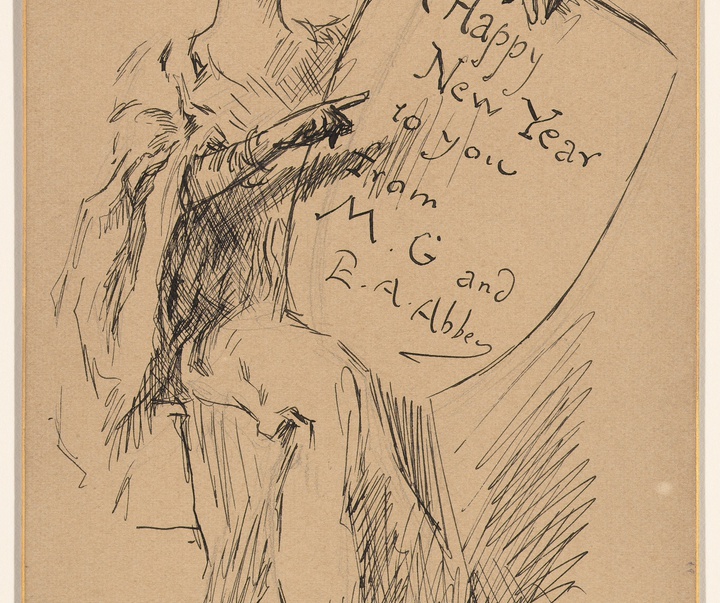 Happy
New Year
to you
from
M. G and
E. A. Abbey